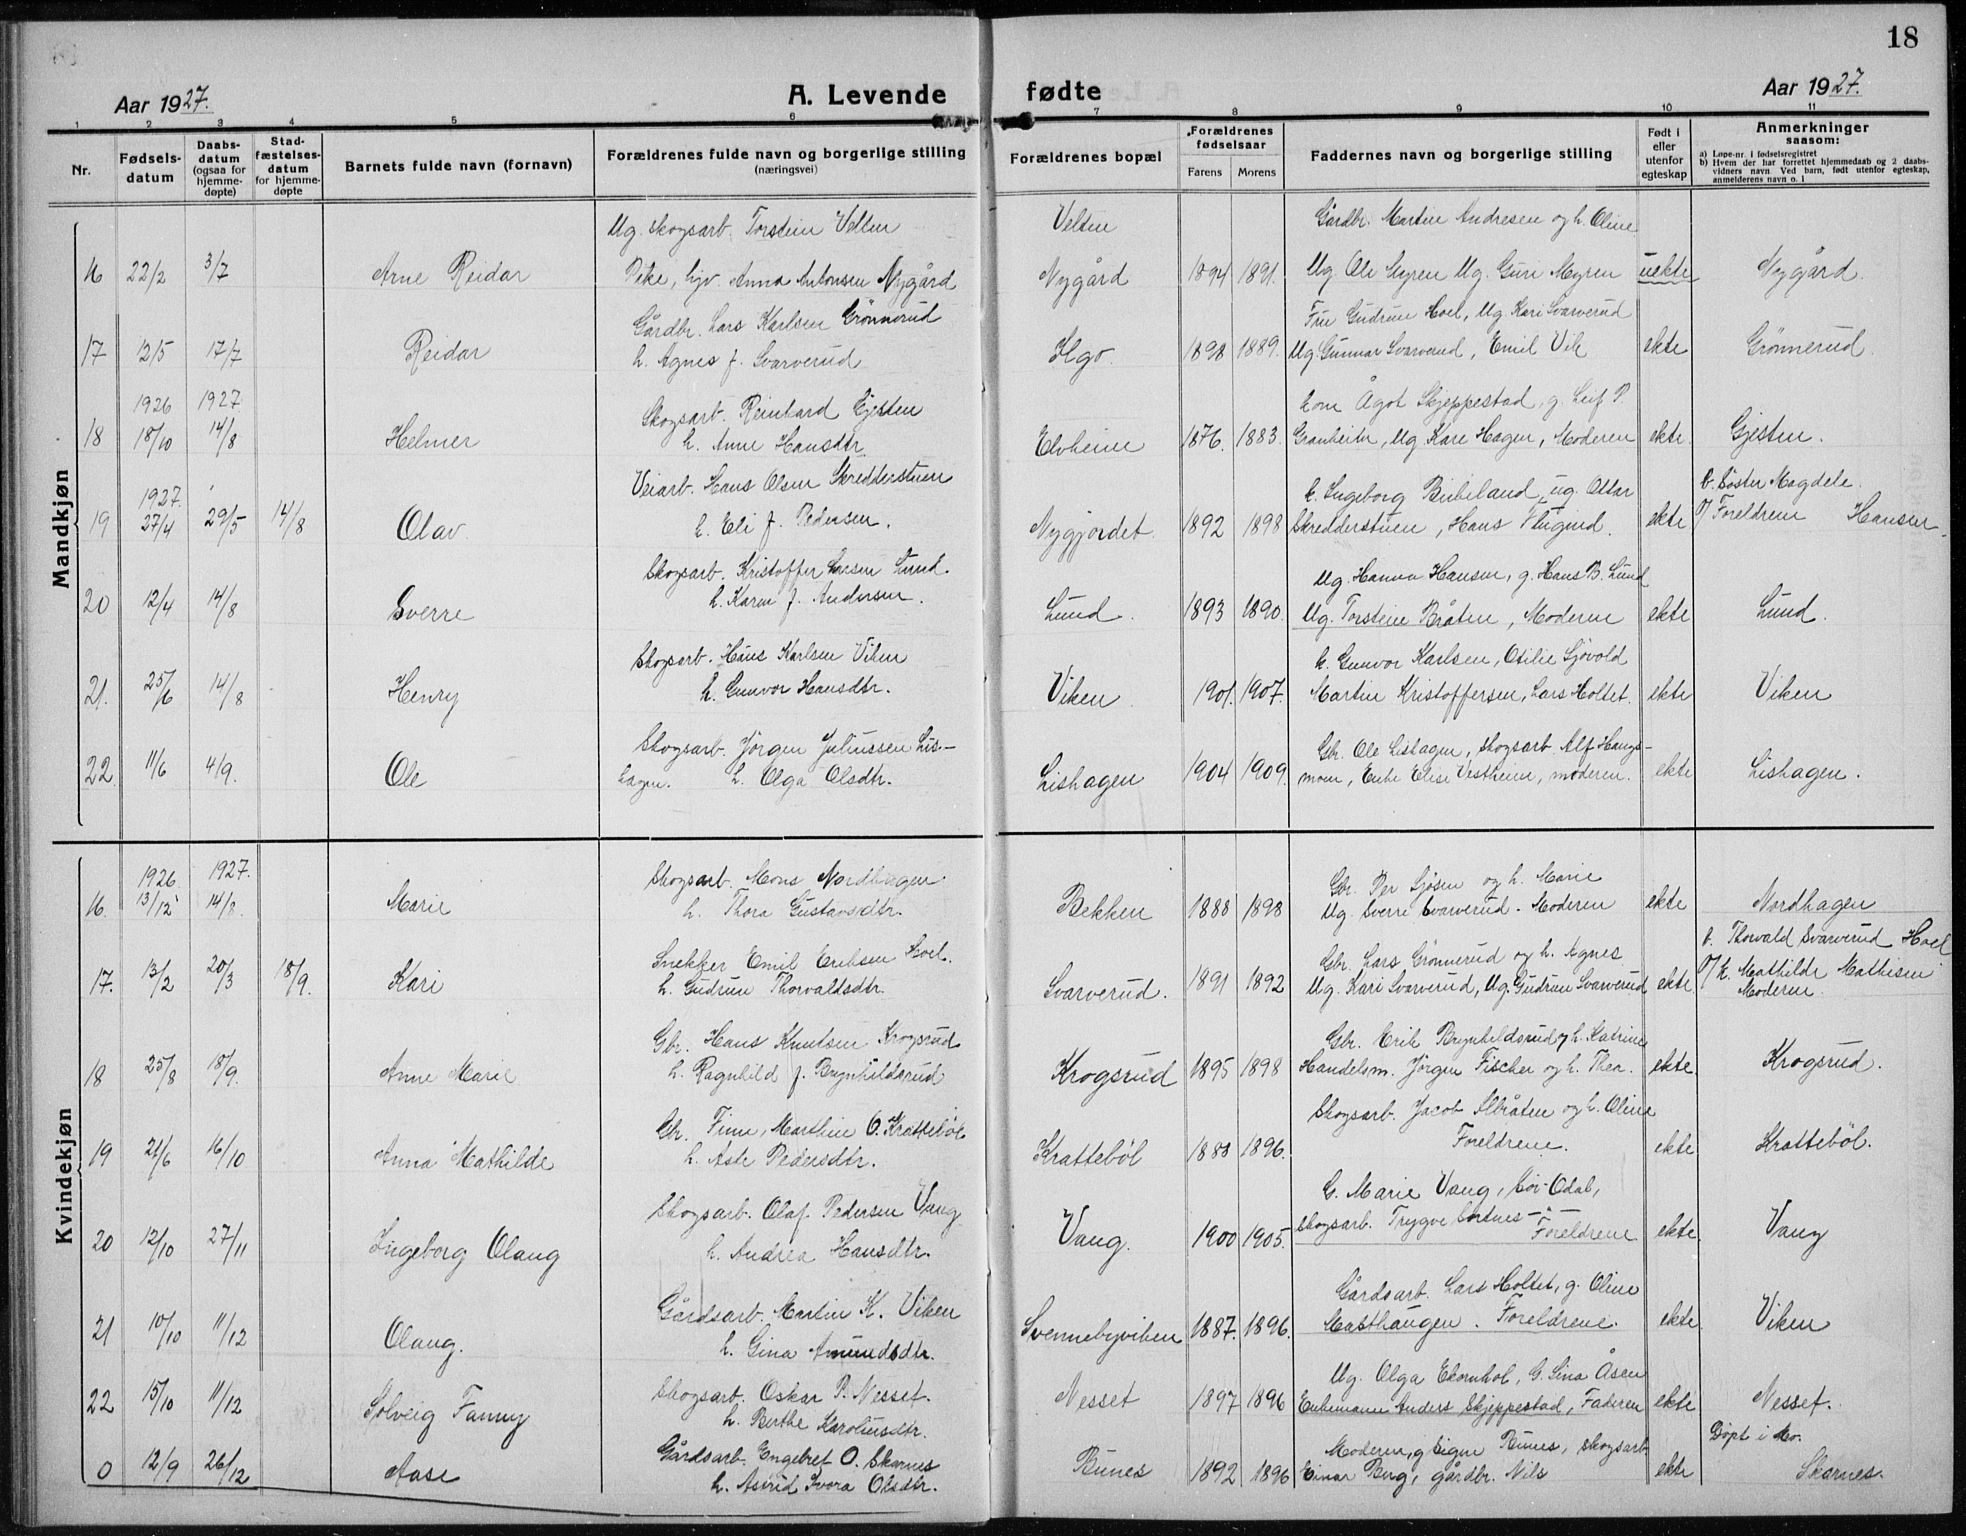 18
Aar 1927.
A. Levende
fødte
Aar 1927.
1 2 3 4 5 6 7 8 9 10 11
Nr.
Fødsels-
datum
Daabs-
datum
(ogsaa for
hjemme-
døpte)
Stad-
fæstelses-
datum
for hjemme-
døpte
Barnets fulde navn (fornavn)
Forældrenes fulde navn og borgerlige stilling
(næringsvei)
Forældrenes bopæl
Forældrenes
fødselsaar
Farens Morens
Faddernes navn og borgerlige stilling
Født i
eller
utenfor
egteskap
Anmerkninger
saasom:
a) Løpe-nr. i fødselsregistret
b) Hvem der har forrettet hjemmedaab og 2 daabs-
vidners navn. Ved barn, født utenfor egteskap,
anmelderens navn o. l
Mandkjøn
Ug. skogsarb. Torstein Velten Velten Gårdbr. Martin Andresen og h. Oline
16 22/2 3/7 Arne Reidar Pike, Anna Antonsen Nygård Nygård 1894 1891. Ug. Ole Myren Ug. Guri Myren uekte Nygård.
Gårdbr. Lars Karlsen Grönnerud Fru Gudrun Hoel, Ug. Kari Svarverud
17 12/5 17/7 Reidar h. Agnes f. Svarverud 1898 1889. Ug. Gunnar Svarverud, Emil Vik ekte Grönnerud
1926 1927. Skogsarb. Reinhard Gjesten Kone Ågot Skjeppestad, g. Leif P.
18 18/10 14/8 Helmer h. Anne Hansdtr. Elvheim 1876. 1883. Granheim, Ug. Kåre Hagen, Moderen ekte. Gjesten.
1927. Veiarb. Hans Olsen Skredderstuen k. Ingeborg Birkeland, ug. Ottar b. Söster Magdele.
19 27/4 29/5 14/8 Olav h. Eli f. Pedersen. Nygjordet 1892 1898 Skredderstuen, Hans Flugind. ekte f/ Foreldrene Hansen.
Skogsarb. Kristoffer Larsen Lund. Ug. Hanna Hansen, g. Hans B. Lund
20 12/4 14/8 Sverre h. Karen f. Andersen. Lund. 1893 1890. Ug. Torstein Bråten, Moderen ekte Lund.
Skogsarb. Hans Karlsen Viken k. Gunvor Karlsen, Otilie Sjövold
21. 25/6 14/8 Henry h. Gunvor Hansdtr. Viken 1901. 1907. Martin Kristoffersen, Lars Holtet. ekte Viken
Skogsarb. Jörgen Juliussen Lis- Gbr. Ole Lishagen, skogsarb. Alf Haugs-
22. 11/6 4/9. Ole hagen. h. Olga Olsdtr. Lishagen 1904 1909. moen, Enke Elise Vestheim, moderen. ekte Lishagen.
Kvindekjøn
1926. 1927. Skogsarb. Mons Nordhagen. Gbr. Per Sjösen og h. Marie
16. 13/12 14/8. Marie h. Thora Gustavsdtr. Bekken 1888 1898 Ug. Sverre Svarverud. Moderen ekte Nordhagen
Snekker Emil Eriksen Hoel. Gbr. Lars Grönnerud og h. Agnes b. Thorvald Svarverud Hoel
17. 13/2 20/3 18/9. Kari h. Gudrun Thorvaldsdtr. Svarverud. 1891 1892 Ug. Kari Svarverud, Ug. Gudrun Svarverud ekte f/ k. Mathilde Mathisen
Moderen.
Gbr. Hans Knutsen Krogsrud Gbr. Erik Brynhildsrud og h. Katrine
18 25/8 18/9. Anne Marie h. Ragnhild f. Brynhildsrud Krogsrud 1895 1898 Handelsm. Jörgen Fischer og h. Thea. ekte. Krogsrud.
Gbr. Finn, Marthin O. Krattebøl Skogsarb. Jacob Albråten og h. Oline
19 21/6 16/10 Anna Mathilde h. Aste Pedersdtr. Krattebøl 1888 1896. Foreldrene. ekte Krattebøl.
Skogsarb. Olaf Pedersen Vang G. Marie Vang, Sör-Odal,
20 12/10 27/11 Ingeborg Olaug h. Andrea Hansdtr. Vang. 1900 1905. skogsarb. Trygve Sortnes - Foreldrene ekte. Vang
Gårdsarb. Martin K. Viken Gårdsarb. Lars Holtet, g. Oline
21 10/10 11/12 Olaug. h. Gina Amundsdtr. Svennebyviken 1887. 1896. Masthaugen. Foreldrene. ekte. Viken
Skogsarb. Oskar P. Nesset. Ug. Olga Ekornhol, G. Lina Åsen
22 15/10 11/12 Solveig Fanny h. Berthe Karoliusdtr. Nesset 1897 1896 Enkemann Anders Skjeppestad, Faderen ekte Nesset.
Gårdsarb. Engebret O. Skarnes Moderen, g Signe Bunes, skogsarb Döpt i Mo.
0 12/9 26/12 Aase h. Astrid Ivora Olsdtr. Bunes 1892 1896 Einar Berg, gårdbr. Nils ekte Skarnes.